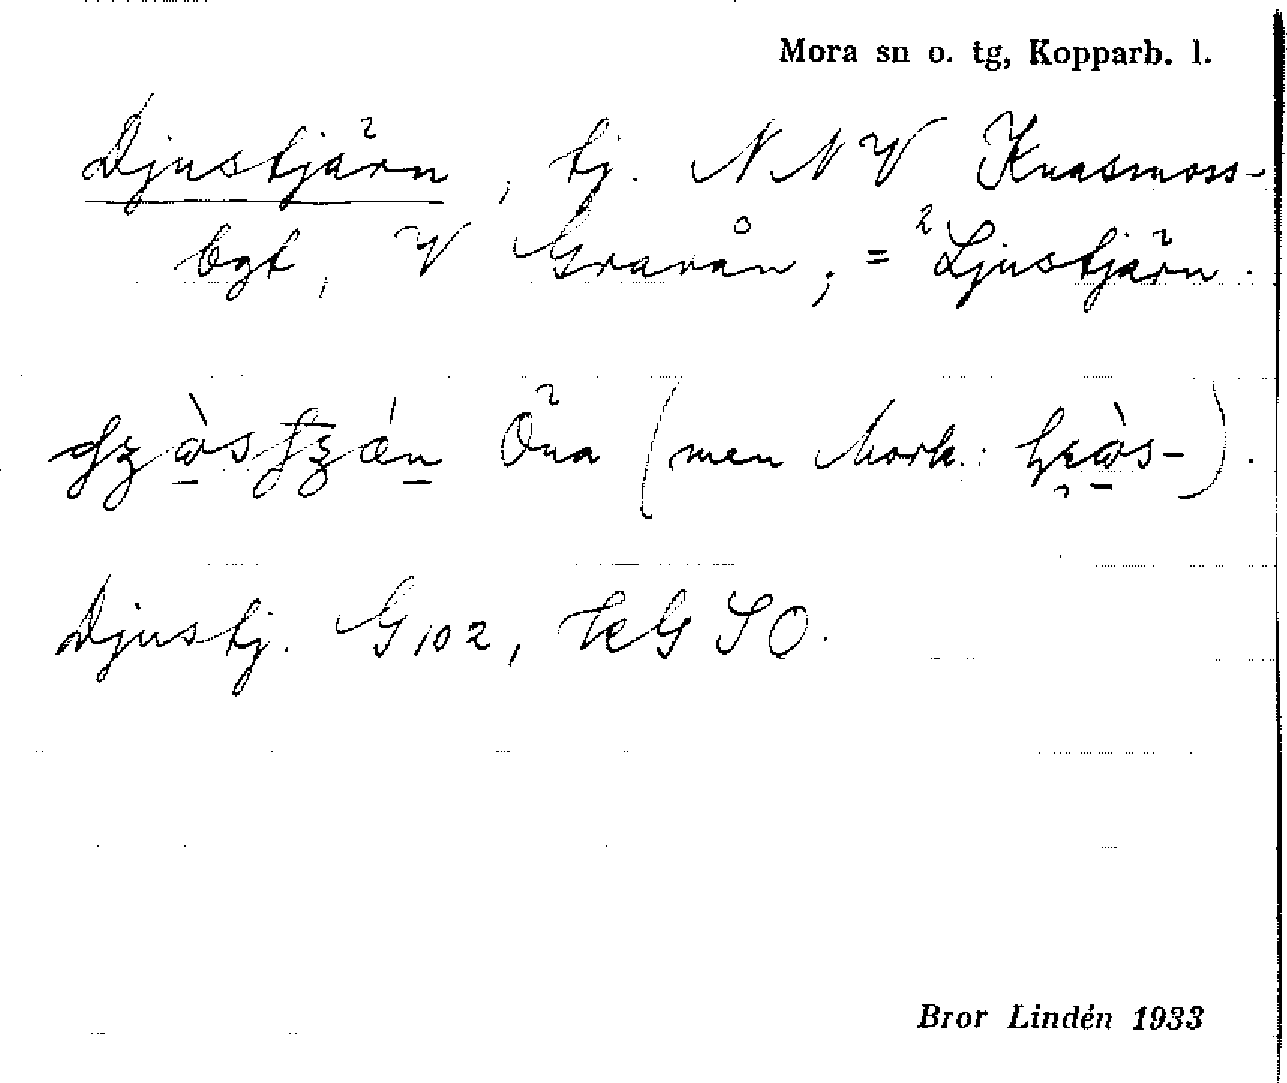 Mora sn o. tg, Kopparb. l.
Djustjärn, tj. NNV Knasmoss-
bgt, V Gravån; = ²Ljustjärn.
Öna (men Mork.:
Djustj. G 102, HkG SO.
Bror Lindén 1933